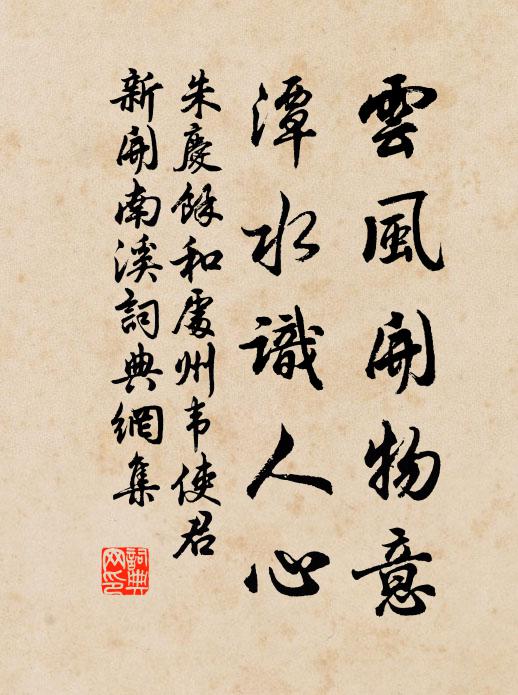 雲風開物意
潭水識人心
朱慶餘和處州韦使君
新開南溪詞典網集
詞典
网印